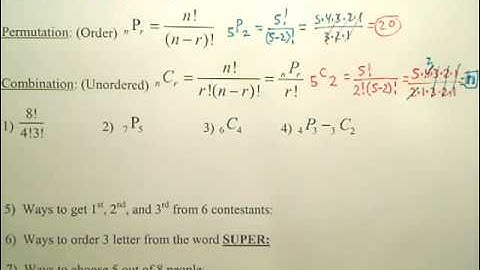 Permutation: (Order) ₙPᵣ = n!/(n−r)! ₅P₂ = 5!/(5-2)! = 5·4·3·2·1/3·2·1 = 20
Combination: (Unordered) ₙCᵣ = n!/r!(n−r)! = ₙPᵣ/r! ₅C₂ = 5!/2!(5-2)! = 5·4·3·2·1/2·1·3·2·1 =
1) 8!/4!3! 2) ₇P₅ 3) ₆C₄ 4) ₄P₃−₃C₂
5) Ways to get 1st, 2nd, and 3rd from 6 contestants:
6) Ways to order 3 letter from the word SUPER:
7) Ways to choose 5 out of 8 people